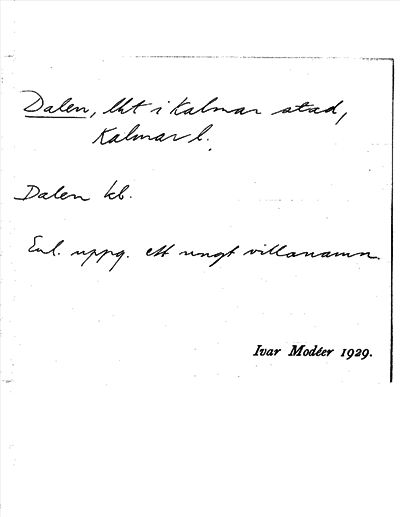 Dalen, lht i Kalmar stad,
Kalmar l.
Dalen kb.
Enl. uppg. ett ungt villanamn.
Ivar Modéer 1929.